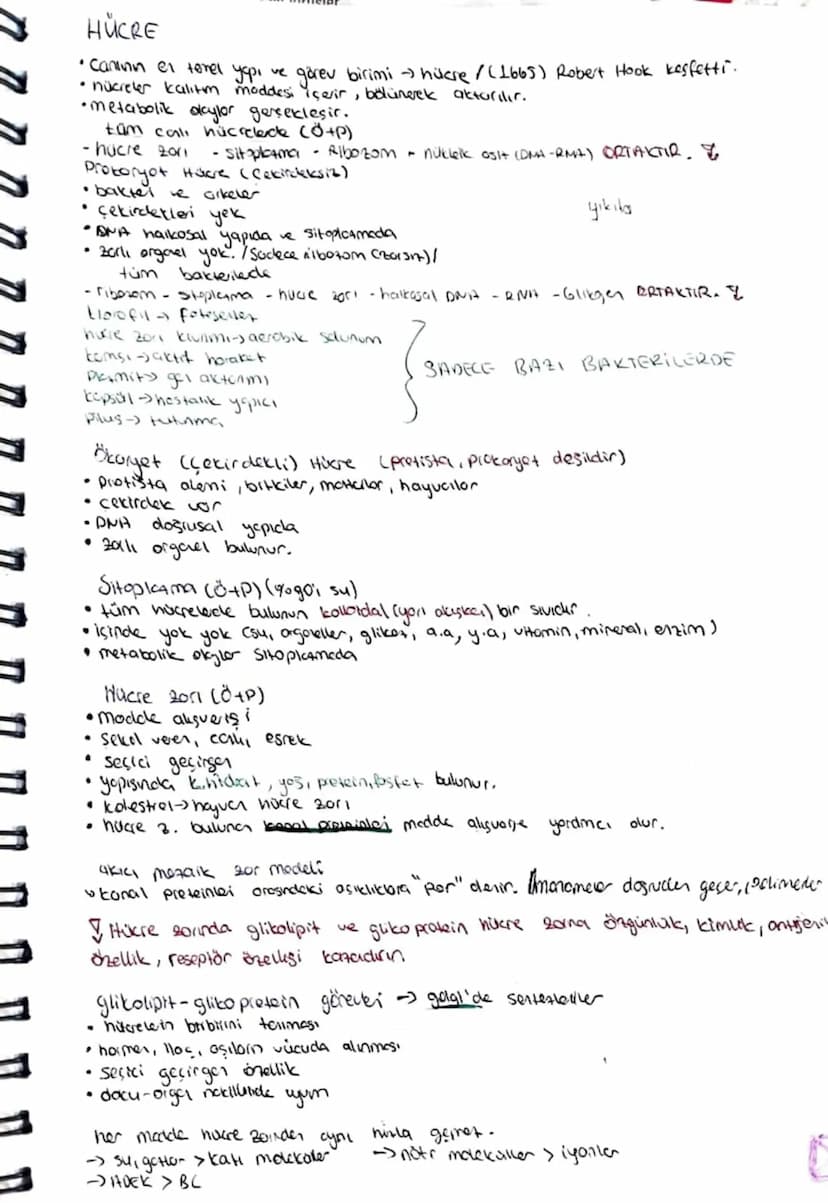 HÜCRE
• canlının en temel yapı ve görev birimi → hücre / (1665) Robert Hook keşfetti.
• hücreler kalıtım maddesi içerir, bölünerek aktarılır.
• metabolik olaylar gerçekleşir.
tüm canlı hücrelerde (Ö+P)
- hücre zarı - sitoplazma - Ribozom - nükleik asit (DNA-RNA) ORTAKTIR.
Prokaryot Hücre (Çekirdeksiz)
• bakteri ve arkeler
• çekirdekleri yok
• DNA halkasal yapıda ve sitoplazmada
• zarlı organel yok. / Sadece ribozom (zarsız) /
tüm bakterilerde
- ribozom - sitoplazma - hücre zarı - halkasal DNA - RNA - Glikojen ORTAKTIR.
klorofil → fotosentez
hücre zarı kıvrımı → aerobik solunum
kamçı → aktif hareket
plazmit → gen aktarımı
kapsül → hastalık yapıcı
pilus → tutunma
SADECE BAZI BAKTERİLERDE
Ökaryot (Çekirdekli) Hücre (protista, prokaryot değildir)
• protista alemi, bitkiler, mantarlar, hayvanlar
• çekirdek var
• DNA doğrusal yapıda
• zarlı organel bulunur.
Sitoplazma (Ö+P) (%90'ı su)
• tüm hücrelerde bulunan kolloidal (yarı akışkan) bir sıvıdır.
• içinde yok yok (su, organeller, glikoz, a.a, y.a, vitamin, mineral, enzim)
• metabolik olaylar sitoplazmada
Hücre zarı (Ö+P)
• madde alışverişi
• şekil veren, canlı, esnek
• seçici geçirgen
• yapısında k.hidrat, yağ, protein, fosfat bulunur.
• kolestrol → hayvan hücre zarı
• hücre z. bulunan kanal proteinleri madde alışverişe yardımcı olur.
akıcı mozaik zar modeli
kanal proteinleri arasındaki açıklıklara "por" denir. (monomerler doğrudan geçer, polimerler
Hücre zarında glikolipit ve glikoprotein hücre zarına özgünlük, kimlik, antijenik
özellik, reseptör özelliği kazandırır.
glikolipit - glikoprotein görevleri → golgi'de sentezlenirler
• hücrelerin birbirini tanıması
• hormon, ilaç, aşıların vücuda alınması
• seçici geçirgen özellik
• doku-organ naklillerinde uyum
her madde hücre zarından aynı hızla geçmez.
→ su, gazlar > katı moleküller → nötr moleküller > iyonlar
→ ADEK > BC